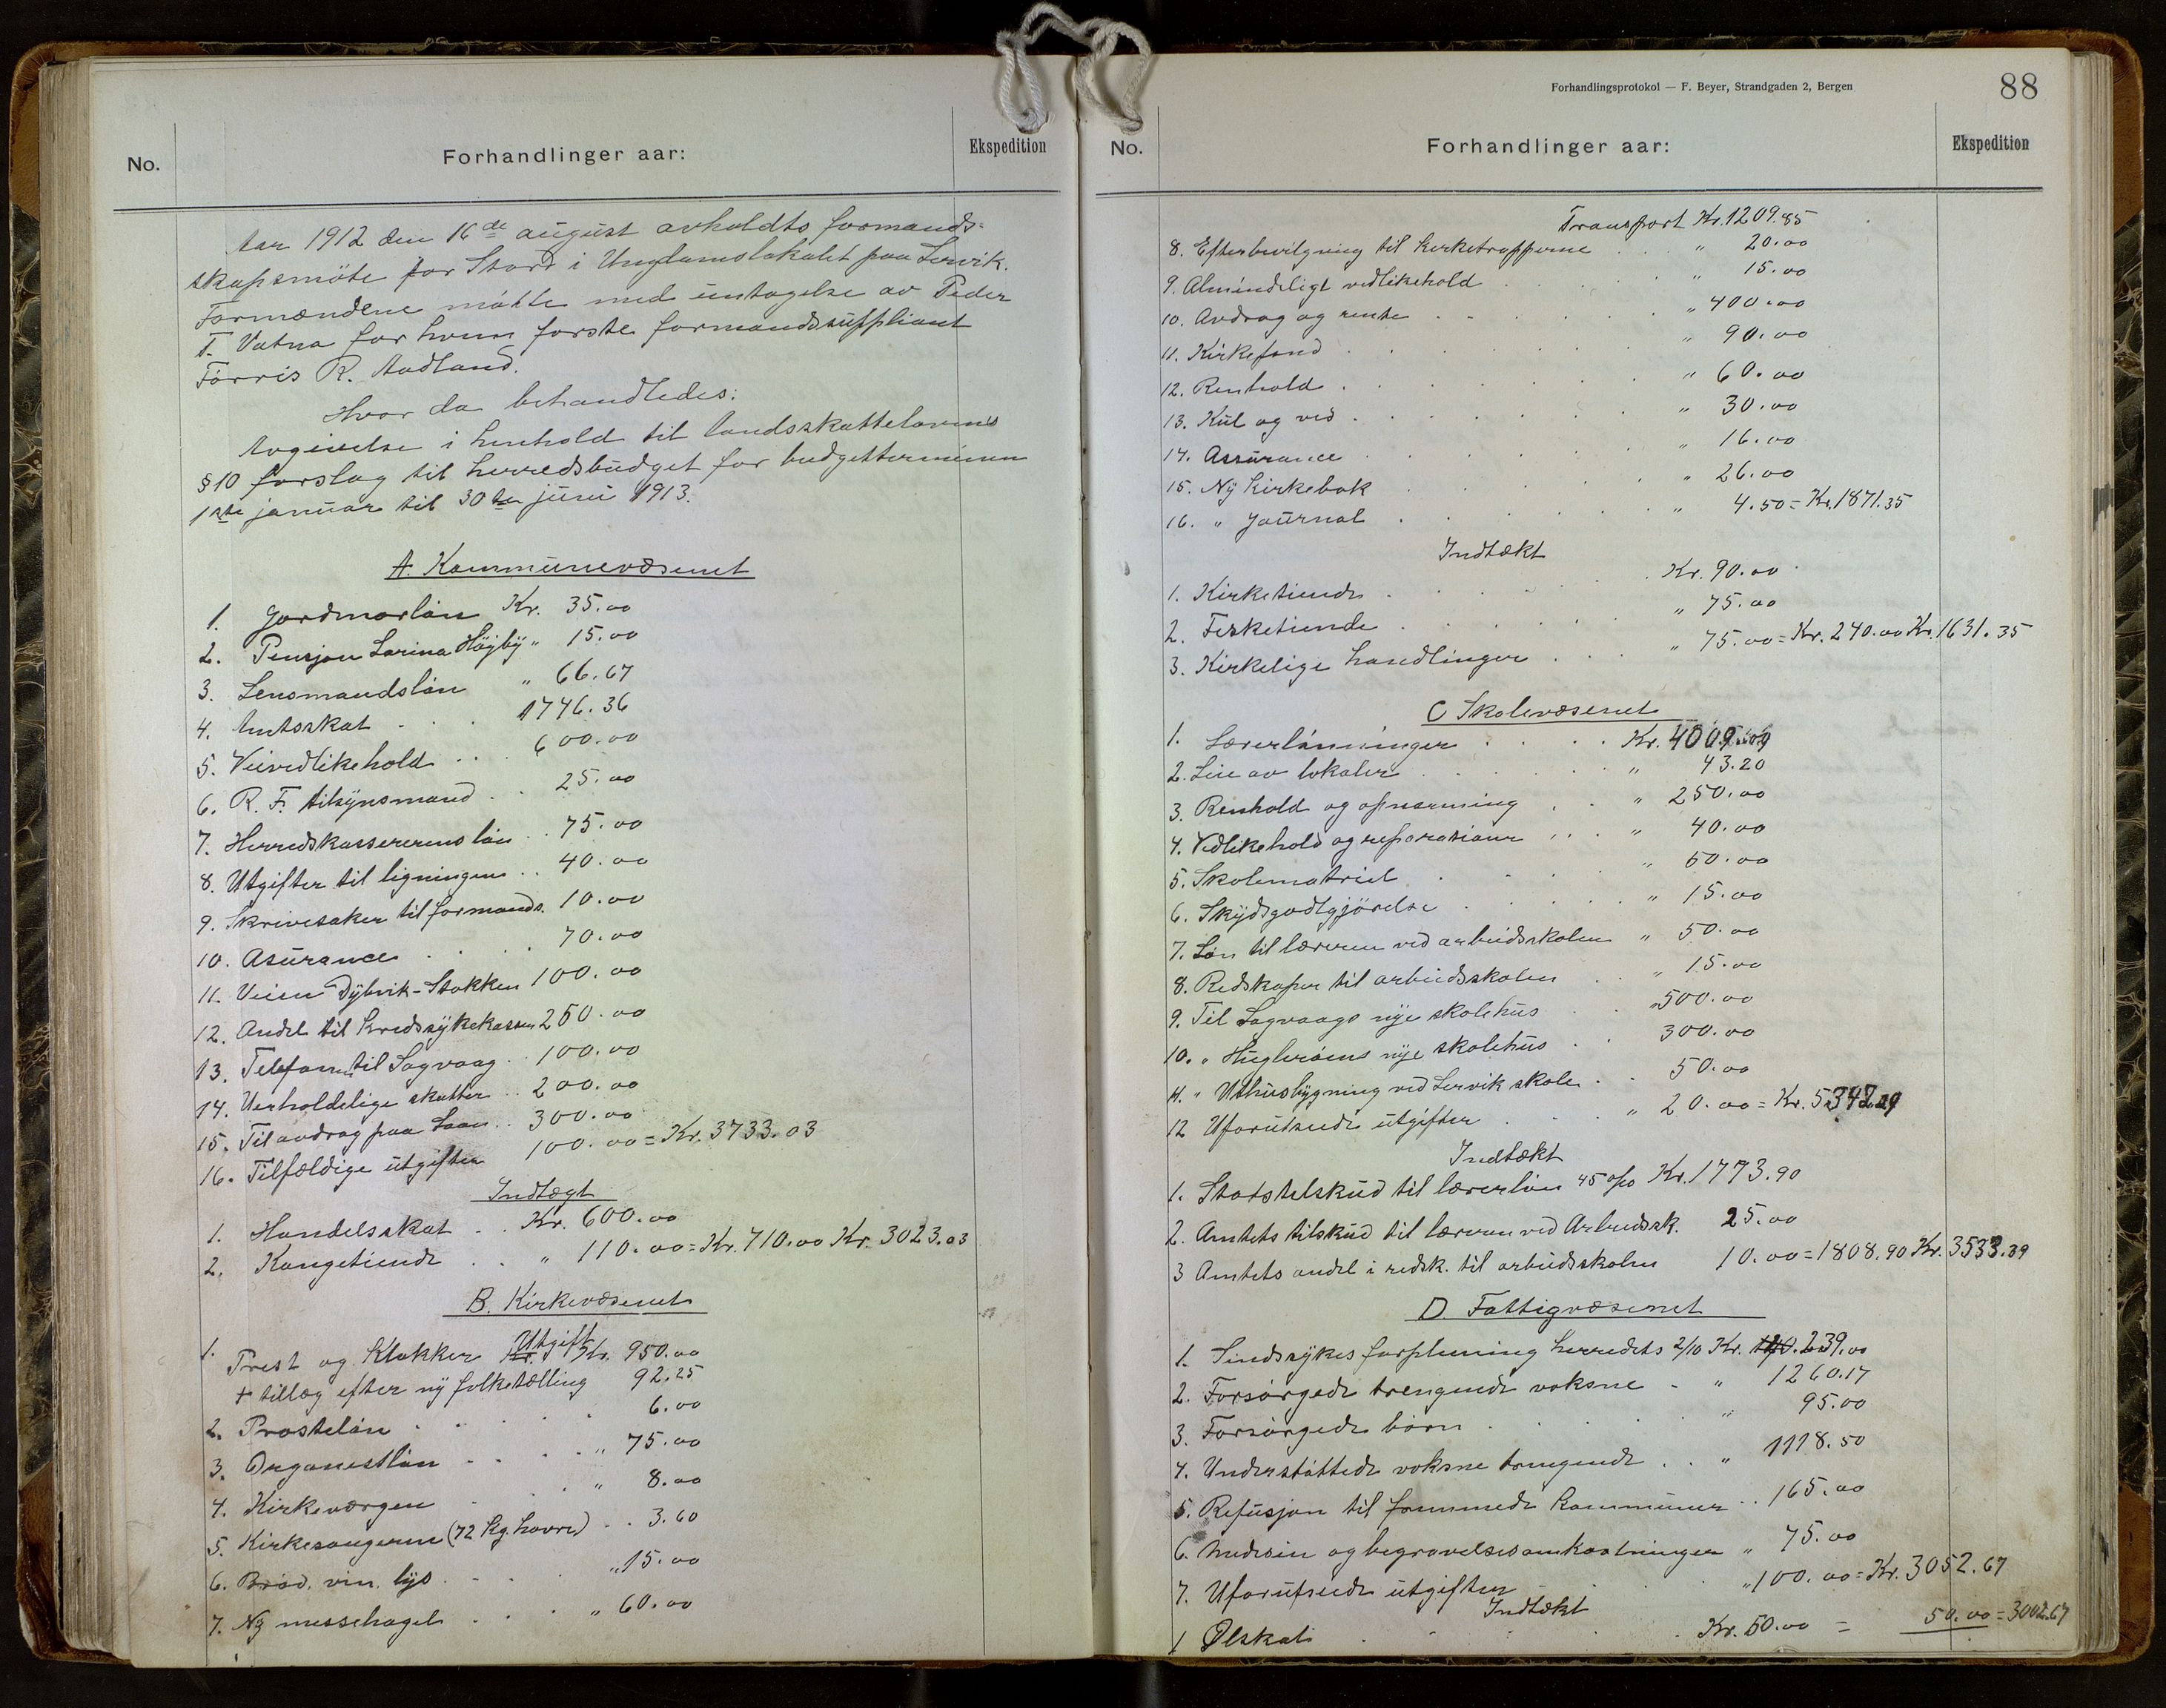 No.
Forhandlinger aar:
Ekspedition
Aar 1912 den 16de august avholdts formands-
skapsmöte for Stord i Ungdomslokalet paa Lervik.
Formændene mötte med untagelse av Peder
T. Vatna for hvem förste formandssuppliant
Törris R. Aadland.
Hvor da behandledes:
Avgivelse i henhold til landsskattelovens
§ 10 forslag til herredsbudget for budgetterminen
1ste januar til 30te juni 1913.
A. Kommunevæsenet
1. Jordmorlön Kr. 35.00
2. Pensjon Larina Högby " 15.00
3. Lensmandslön " 66.67
4. Amtsskat 1746.36
5. Veivedlikehold 600.00
6. R. F. tilsynsmand 25.00
7. Herredskassererens lön 75.00
8. Utgifter til ligningen 40.00
9. Skrivesaker til formands. 10.00
10. Asurance 70.00
11. Veien Dybvik-Stokken 100.00
12. Andel til Kredssykekassen 250.00
13. Telefon til Sagvaag 100.00
14. Uerholdelige skatter 200.00
15. Til avdrag paa Laan 300.00
16. Tilfældige utgifter 100.00 = Kr. 3733.03
Indtægt
1. Handelsskat Kr. 600.00
2. Kongetiende " 110.00 = Kr. 710.00 Kr. 3023.03
B. Kirkevæsenet
Utgift
1. Prest og Klokker Kr. 950.00
+ tillæg efter ny folketælling 92.25
2. Prostelön 6.00
3. Organistlön " 75.00
4. Kirkeværgen " 8.00
5. Kirkesangeren (72 Kg. havre) 3.60
6. Bröd, vin, lys " 15.00
7. Ny messehagel " 60.00
Forhandlingsprotokol — F. Beyer, Strandgaden 2, Bergen
88
No.
Forhandlinger aar:
Ekspedition
Transport Kr. 1209.85
8. Efterbevilgning til kirketrapperne " 20.00
9. Almindeligt vedlikehold " 15.00
10. Avdrag og rente " 400.00
11. Kirkefond " 90.00
12. Renhold " 60.00
13. Kul og ved " 30.00
14. Assurance " 16.00
15. Ny Kirkebok " 26.00
16. " Journal " 4.50 = Kr. 1871.35
Indtækt
1. Kirketiende Kr. 90.00
2. Fisketiende " 75.00
3. Kirkelige handlinger " 75.00 = Kr. 240.00 Kr. 1631.35
C Skolevæsenet
1. Lærerlönninger Kr. 4009.09
2. Leie av lokaler " 43.20
3. Renhold og opvarming " 250.00
4. Vedlikehold og reparationer " 40.00
5. Skolematriel " 50.00
6. Skydsgodtgjörelse " 15.00
7. Lön til læreren ved arbeidsskolen " 50.00
8. Redskaper til arbeidsskolen " 15.00
9. Til Sagvaags nye skolehus " 500.00
10. " Huglenöens nye skolehus 300.00
11. " Uthusbygning ved Lervik skole 50.00
12 Uforutseede utgifter " 20.00 = Kr. 5342.29
Indtækt
1. Statstilskud til lærerlön 45 o/o Kr. 1773.90
2. Amtets tilskud til læreren ved Arbeidssk. 25.00
3 Amtets andel i redsk. til arbeidsskolen 10.00 = 1808.90 Kr. 3533.39
D. Fattigvæsenet
1. Sindssykes forpleining herredets 2/10 Kr. 239.00
2. Forsörgede trengende voksne " 1260.17
3. Forsörgede börn " 95.00
4. Understöttede voksne trengende " 1118.50
5. Refusjon til fremmede kommuner 165.00
6. Medisin og begravelsesomkostninger " 75.00
7. Uforutseede utgifter " 100.00 = Kr. 3052.67
Indtækt
1 Ölskat Kr. 50.00 = 50.00 = 3002.67